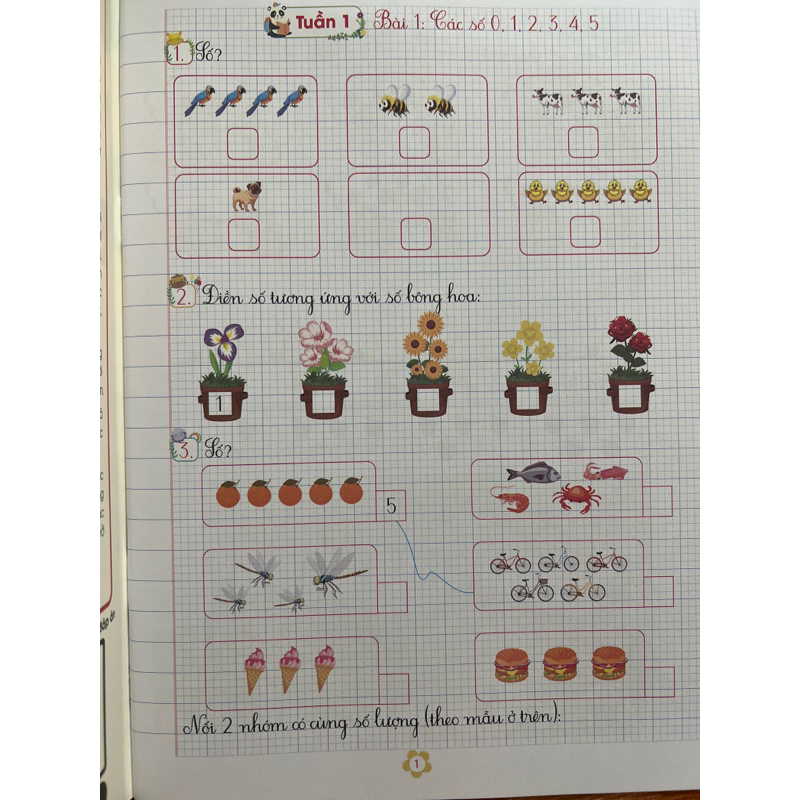 Tuần 1 Bài 1: Các số 0, 1, 2, 3, 4, 5
1. Số?
2. Điền số tương ứng với số bông hoa:
1
3. Số?
5
Nối 2 nhóm có cùng số lượng (theo mẫu ở trên):
1